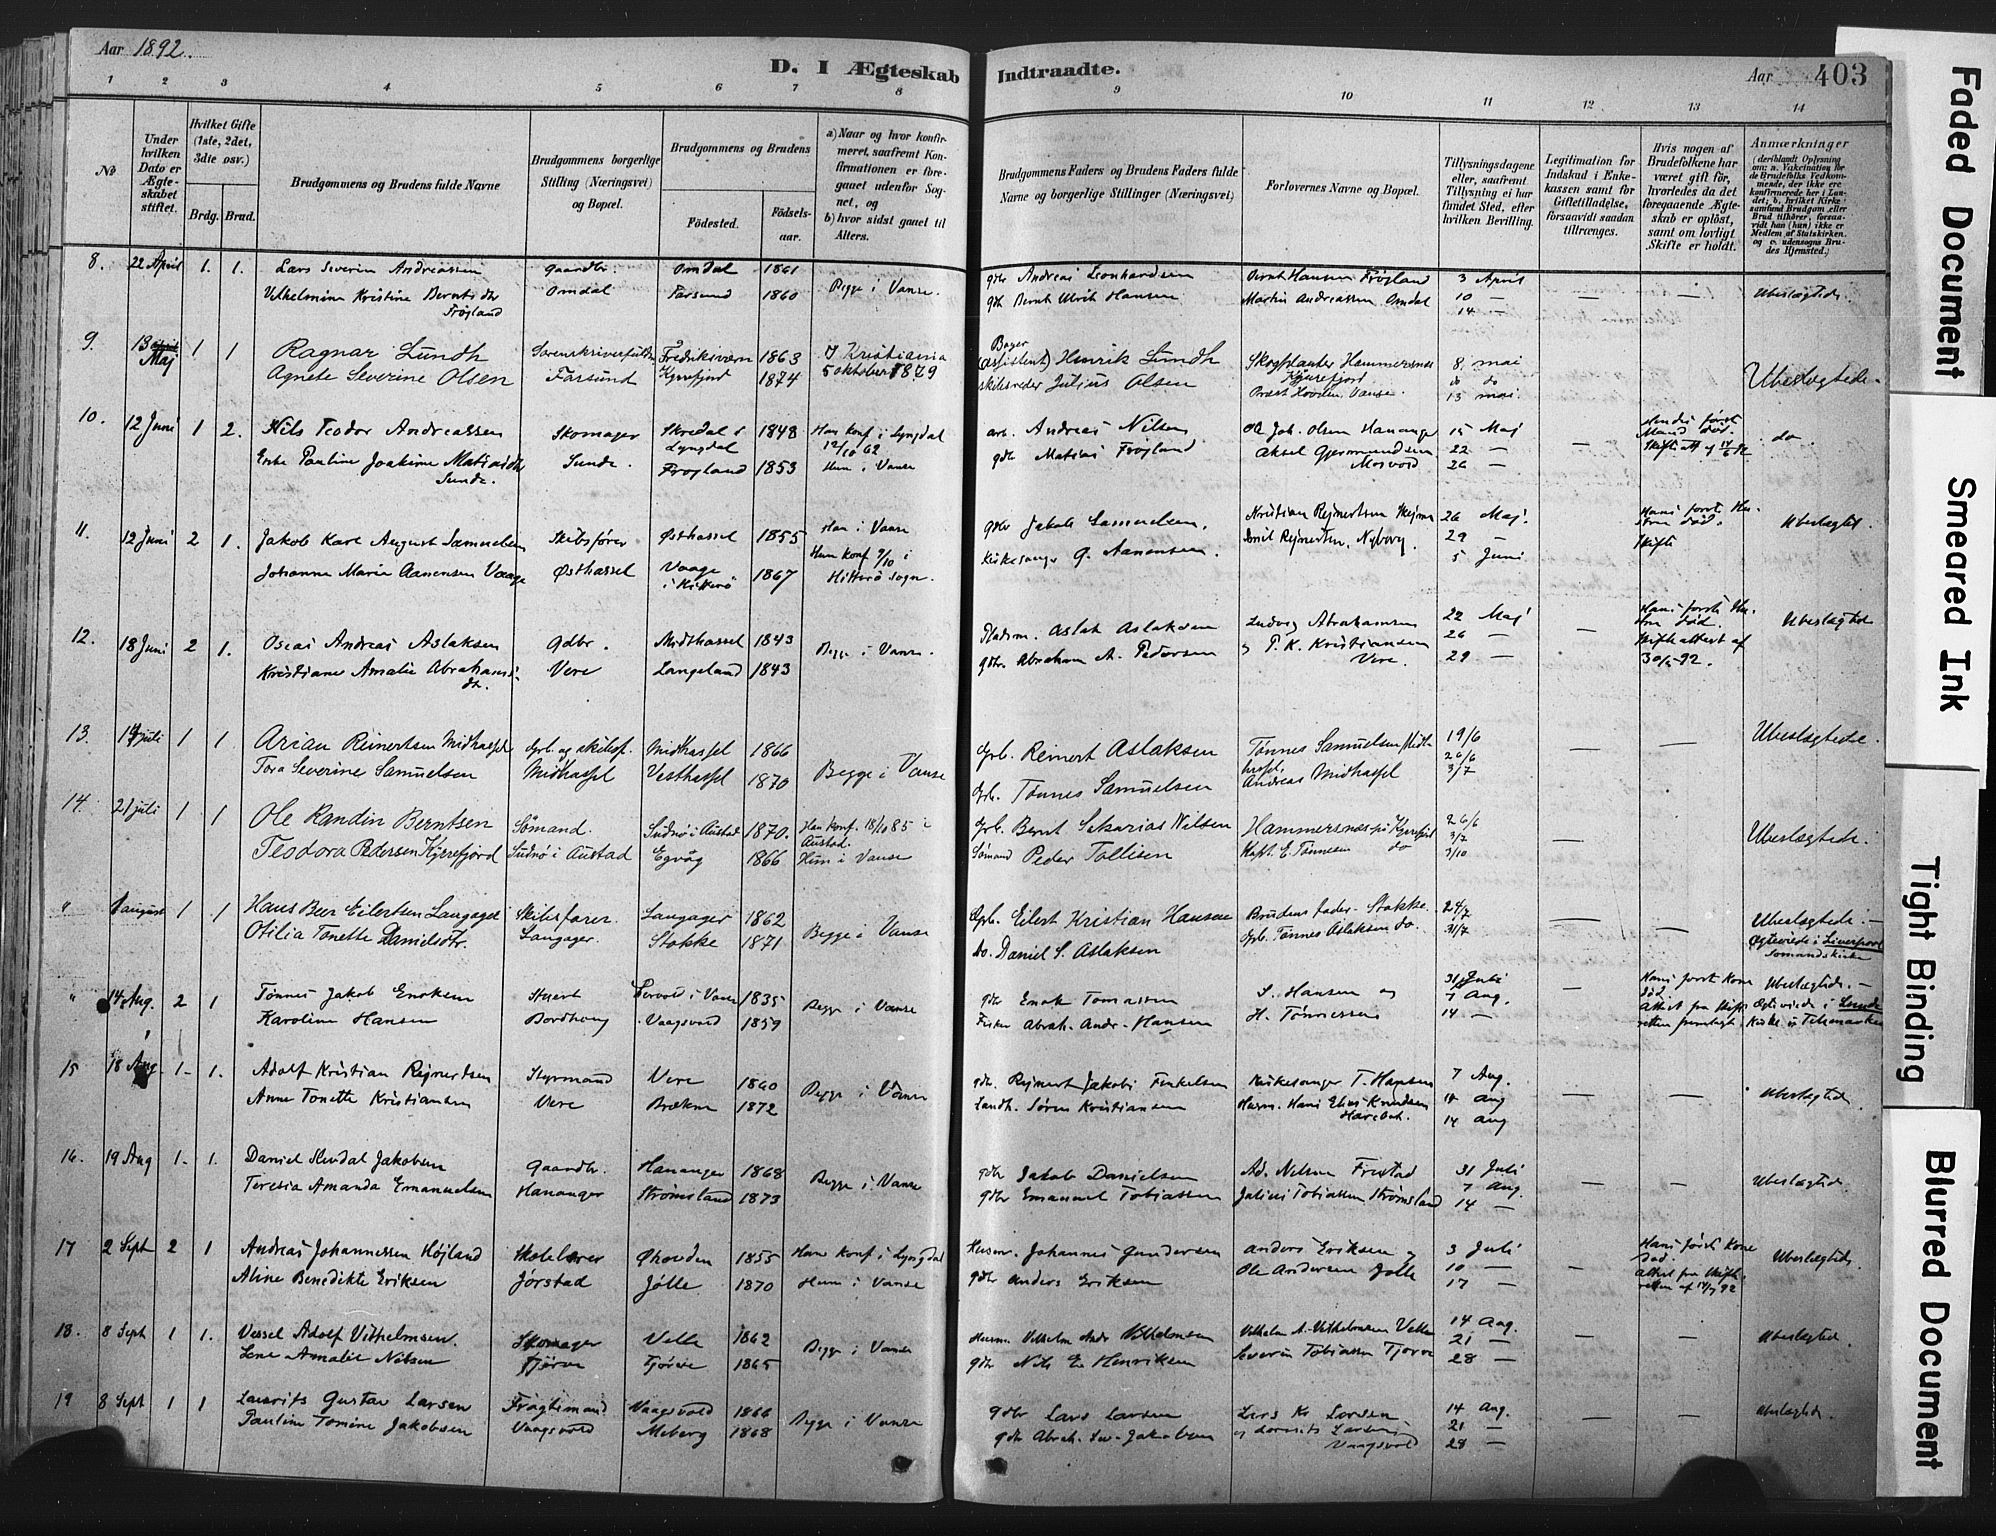 Aar 1892.
D. I Ægteskab Indtraadte.
Aar 403
1 2 3 4 5 6 7 8 9 10 11 12 13 14
No
Under hvilken Dato er Ægteskabet stiftet.
Hvilket Gifte (1ste, 2det, 3die osv.)
Brdg. Brud.
Brudgommens og Brudens fulde Navne
Brudgommens borgerlige Stilling (Næringsvei) og Bopæl.
Brudgommens og Brudens
Fødested.
Fødselsaar.
a) Naar og hvor konfirmeret, saafremt Konfirmationen er foregaaet udenfor Sognet, og
b) hvor sidst gaaet til Alters.
Brudgommens Faders og Brudens Faders fulde Navne og borgerlige Stillinger (Næringsvei)
Forlovernes Navne og Bopæl.
Tillysningsdagene eller, saafremt Tillysning ei har fundet Sted, efter hvilken Bevilling.
Legitimation for Indskud i Enkekassen samt for Giftetilladelse, forsaavidt saadan tiltrænges.
Hvis nogen af Brudefolkene har været gift før, hvorledes da det foregaaende Ægteskab er opløst, samt om lovligt Skifte er holdt.
Anmærkninger
(deriblandt Oplysning om: a. Vakcination for de Brudefolks Vedkommende, der ikke ere konfirmerede her i Landet; b. hvilket Kirkesamfund Brudgom eller Brud tilhører, forsaavidt han (hun) ikke er Medlem af Statskirken, og c. udensogns Brudes Hjemsted.)
8. 22 April 1. 1. Lars Severin Andreassen Gaardbr. Omdal 1861 Begge i Vanse. gdb Andreas Leonhardsen Bernt Hansen Frøyland 3 April
Vilhelmine Kristine Berntsdtr Omdal Farsund 1860 gdb Bernt Ulrik Hansen Martin Andreassen Omdal 10 — — — Ubeslægtede.
Frøyland 14 —
9. 13 Maj 1 1 Ragnar Lundh Sorenskriverfuldm Fredriksværn 1863 I Kristiania (assistent) Henrik Lundh Skogplanter Hammersnes 8 mai
Agnete Severine Olsen Farsund Kjørrefjord 1874 5 oktober 1879 skibsreder Julius Olsen Kjørrefjord do do Ubeslægtede.
Vanse. 13 mai.
10. 12 Juni 1 2. Nils Teodor Andreassen Skomager Skredal i 1848 Han Konf i Lyngdal arb. Andreas Nilsen Joh. Olsen Hananger 15 Maj
Lyngdal 12/10 62 22 — — do.
Enke Pauline Joakime Matiasdtr Sunde. Frøyland 1853 Hun i Vanse gdb Matias Frøyland Aksel Gjermundsen 26 —
Sunde. Mosvold
11. 12 Juni 2 1. Jakob Karl August Samuelsen Skibsfører Østhassel 1855 Han i Vanse gdb Jakob Samuelsen. Kristian Rejnertsen 26 Maj. Ubeslægtet.
Hun Konf 9/10 i 29 — Skifte
Johanne Marie Aanensen Vaage Østhassel Vaage 1867 Hitterø sogn. Kirkesanger G. Aanensen. Emil Rejnertsen, Nyborg. 5 Juni
i Hitterø
12. 18 Juni 2 1. Oseas Andreas Aslaksen Gdbr. Midthassel 1843 Begge i Vanse. Aslak Aslaksen Ludvig Abrahamsen 22 Maj Ubeslægtede
26 — —
Kristiane Amalie Abrahams- Vere Langeland 1843 gdb. Abraham A. Pedersen og P. K. Kristiansen 29 —
dtr. Vere.
13. juli 1 1 Arian Reinertsen Midhassel Grb. og skibsf. Midhassel 1866 Begge i Vanse Grb. Reinert Aslaksen Tønnes Samuelsen 19/6 Ubeslægtede.
26/6 — —
Tora Severine Samuelsen Midhassel Vesthassel 1870 Grb. Tønnes Samuelsen Andreas Midhassel 3/7
14. 21 juli 1 1 Ole Randin Berntsen Sømand. Sudnø i Austad 1870. Han Konf. 18/10 85 i Austad. Grb. Bernt Sakarias Nilsen Hammersnes på Kjørrefjord 26/6
3/7 — Ubeslægtede.
Teodora Pedersen Kjørrefjord Sudnø i Austad Egvåg 1866 Hun i Vanse Sømand Peder Tollisen Kapt. E. Tønnesen do 3/10
" august 1 1 Hans Beer Eilertsen Langager Skibsfører. Langager 1862 Begge i Vanse Grb. Eilert Kristian Hansen Brudens fader - Stokke. 24/7 — — Ubeslægtede. —
Otilia Tonette Danielsdtr. Langager. Stokke 1871 do. Daniel S. Aslaksen Grb. Tønnes Aslaksen do. 31/7 Ægteviede i Liverpool
Sømandskirke
" 14 Aug. 2 1 Tønnes Jakob Enoksen 1835 Begge i Vanse gdb Enok Tomassen S. Hansen og 31 Juli — Ubeslægtede. —
7 Aug.
Karoline Hansen Vaagsvold 1859 Fisker Abrah. Andr. Hansen H. Tønnessen 14 — Kirke i Telemarken
15 18 Aug. 1. 1. Adolf Kristian Rejnertsen Styrmand Vere 1860 Begge i Vanse gdb. Rejnert Jakobs Kirkesanger T. Hansen 7 Aug.
Anne Tonette Kristiansen Vere Brækne 1872 Landh. Søren Kristiansen Husm. Hans Elias Knudsen aug — — Ubeslægtede.
14 aug
16. 19 Aug 1. 1. Daniel Jakobsen Gaardbr. Hananger 1868 Begge i Vanse gdb Jakob Danielsen Ad. Nilsen Frestad 31 Juli
7 Aug. — — Ubeslægtede.
Teresia Amanda Emanuelsen Hananger Strømsland 1873 gdb Emanuel Tobiassen Julius Tobiassen Strømsland 14 —
17 2 Sept 2 1 Andreas Johannessen Højland Skolelærer 1855 Han Konf i Lyngdal Husm. Johannes Gundersen Anders Eriksen og 3 Juli Hans første Kone død. Ubeslægtede.
10 — —
Aline Benedikte Eriksen Jørstad Jølle 1870 Hun i Vanse gdb Anders Eriksen Ole Andersen Jølle 17 —
18. 8 Sept 1 1. Vessel Adolf Vilhelmsen. Skomager Velle 1862 Begge i Vanse Husm. Vilhelm Andr Vilhelmsen Vilhelm A. Vilhelmsen Velle 14 Aug.
21 — — — Ubeslægtede
Lene Amalie Nilsen Tjørve Tjørve 1865 gdb Nils E. Henriksen Severin Tobiassen Tjørve 28 —
19 8 Sept 1 1 Laurits Gustav Larsen Fragtmand Vaagsvold 1866 Begge i Vanse gdb Lars Larsen Lars Kr Larsen 14 Aug. Ubeslægtede.
21 — — —
Pauline Tomine Jakobsen Vaagsvold Meberg 1868 gdb Abrah. Jakobsen og Laurits Larsen 28 —
Vaagsvold
Faded Document
Smeared Ink
Tight Binding
Blurred Document